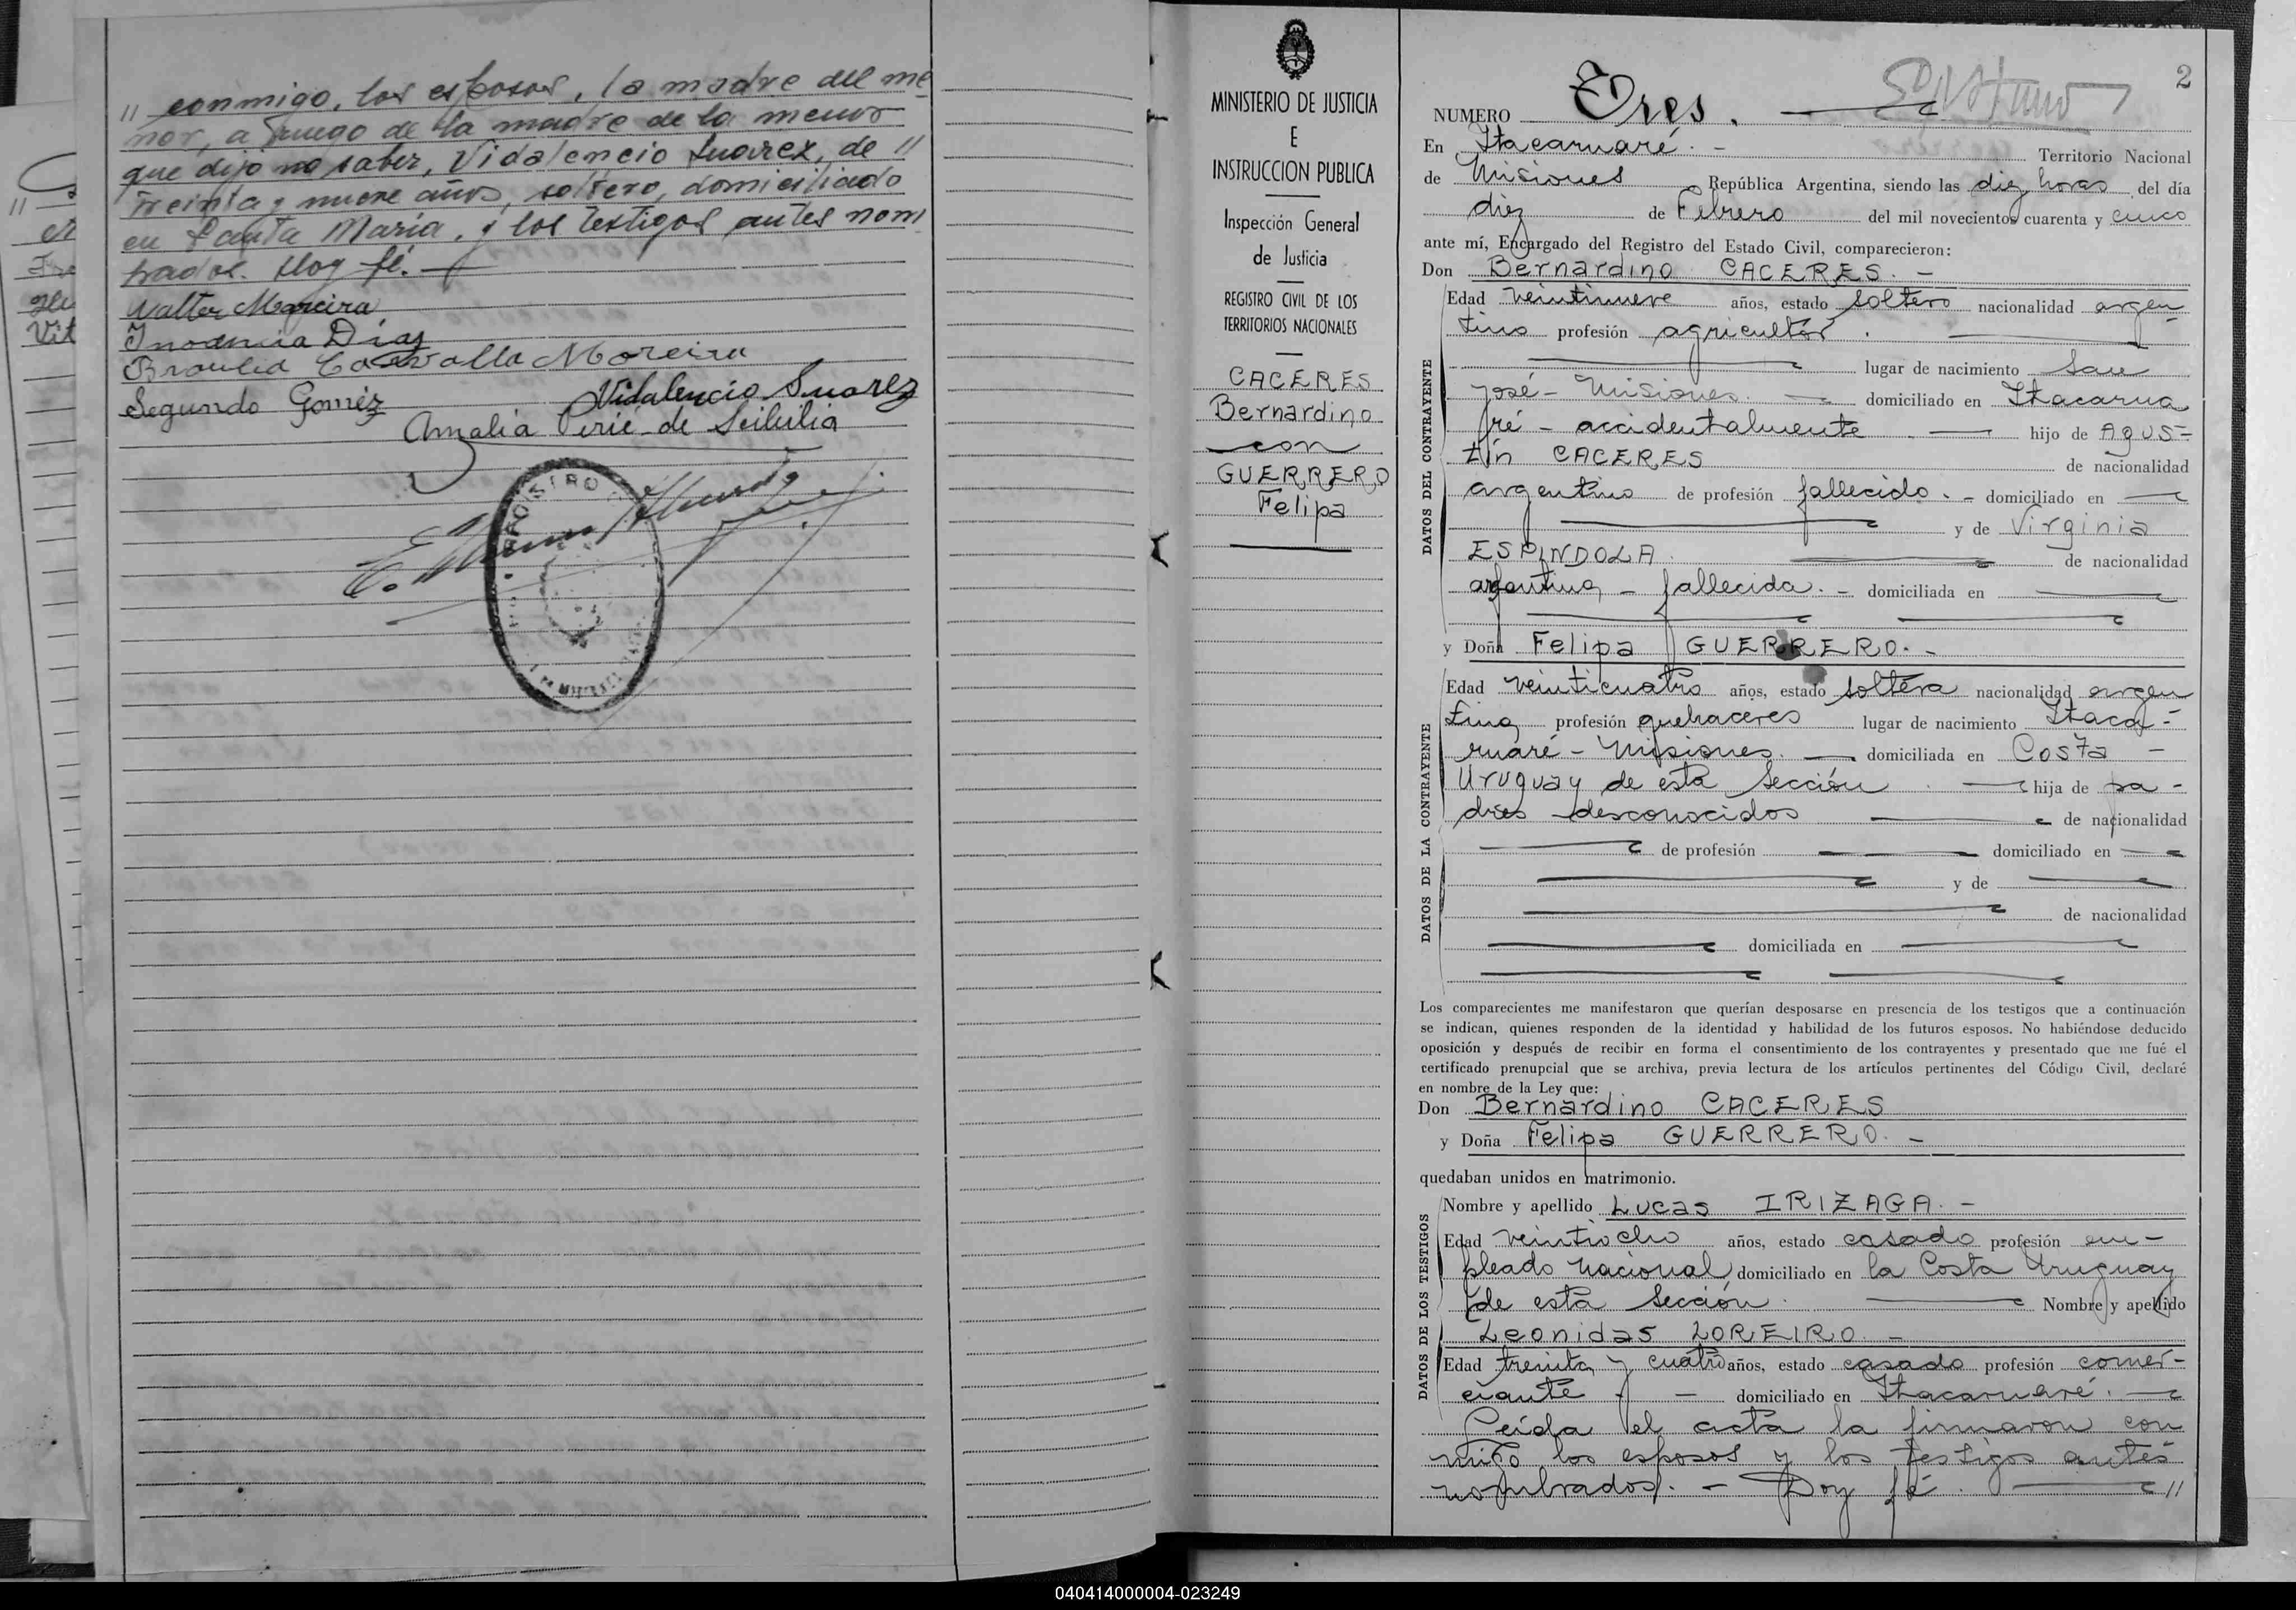 " conmigo, los esposos, la madre del me
nor, a ruego de la madre de la menor
que dijo no saber, Vidalencio Suarez, de "
treinta y nueve años, soltero, domiciliado
en Santa María, y los testigos antes nom
brados. Doy fé.
Walter Moreira
Inocencia Díaz
Braulia Moreira
Segundo Goméz
Vidalencio Suarez
Amalia de
REGISTRO
MINISTERIO DE JUSTICIA
E
INSTRUCCION PUBLICA
Inspección General
de Justicia
REGISTRO CIVIL DE LOS
TERRITORIOS NACIONALES
CACERES
Bernardino
con
GUERRERO
Felipa
2
NUMERO Tres. -
En Itacaruaré. - Territorio Nacional
de Misiones República Argentina, siendo las diez horas del día
diez de Febrero del mil novecientos cuarenta y cinco
ante mí, Encargado del Registro del Estado Civil, comparecieron:
Don Bernardino CACERES. -
DATOS DEL CONTRAYENTE
Edad veintinueve años, estado soltero nacionalidad argen
tino profesión agricultor.
lugar de nacimiento San
José - Misiones. domiciliado en Itacarua
ré - accidentalmente hijo de AGUS=
tín CACERES de nacionalidad
argentino de profesión fallecido. - domiciliado en
y de Virginia
ESPINDOLA de nacionalidad
argentina - fallecida. - domiciliada en
y Doña Felipa GUERRERO. -
DATOS DE LA CONTRAYENTE
Edad veinticuatro años, estado soltera nacionalidad argen
tina profesión quehaceres lugar de nacimiento Itaca -
ruaré - Misiones. domiciliada en Costa -
Uruguay de esta Sección hija de pa -
dres desconocidos de nacionalidad
de profesión domiciliado en
y de
de nacionalidad
domiciliada en
Los comparecientes me manifestaron que querían desposarse en presencia de los testigos que a continuación
se indican, quienes responden de la identidad y habilidad de los futuros esposos. No habiéndose deducido
oposición y después de recibir en forma el consentimiento de los contrayentes y presentado que me fué el
certificado prenupcial que se archiva, previa lectura de los artículos pertinentes del Código Civil, declaré
en nombre de la Ley que:
Don Bernardino CACERES
y Doña Felipa GUERRERO. -
quedaban unidos en matrimonio.
DATOS DE LOS TESTIGOS
Nombre y apellido Lucas IRIZAGA. -
Edad veintiocho años, estado casado profesión em -
pleado nacional domiciliado en la Costa Uruguay
de esta Sección. Nombre y apellido
Leonidas LOREIRO. -
Edad treinta y cuatro años, estado casado profesión comer-
ciante. - domiciliado en Itacaruaré.
Leída el acta la firmaron con
migo los esposos y los testigos antes
nombrados. - Doy fé. "
040414000004-023249